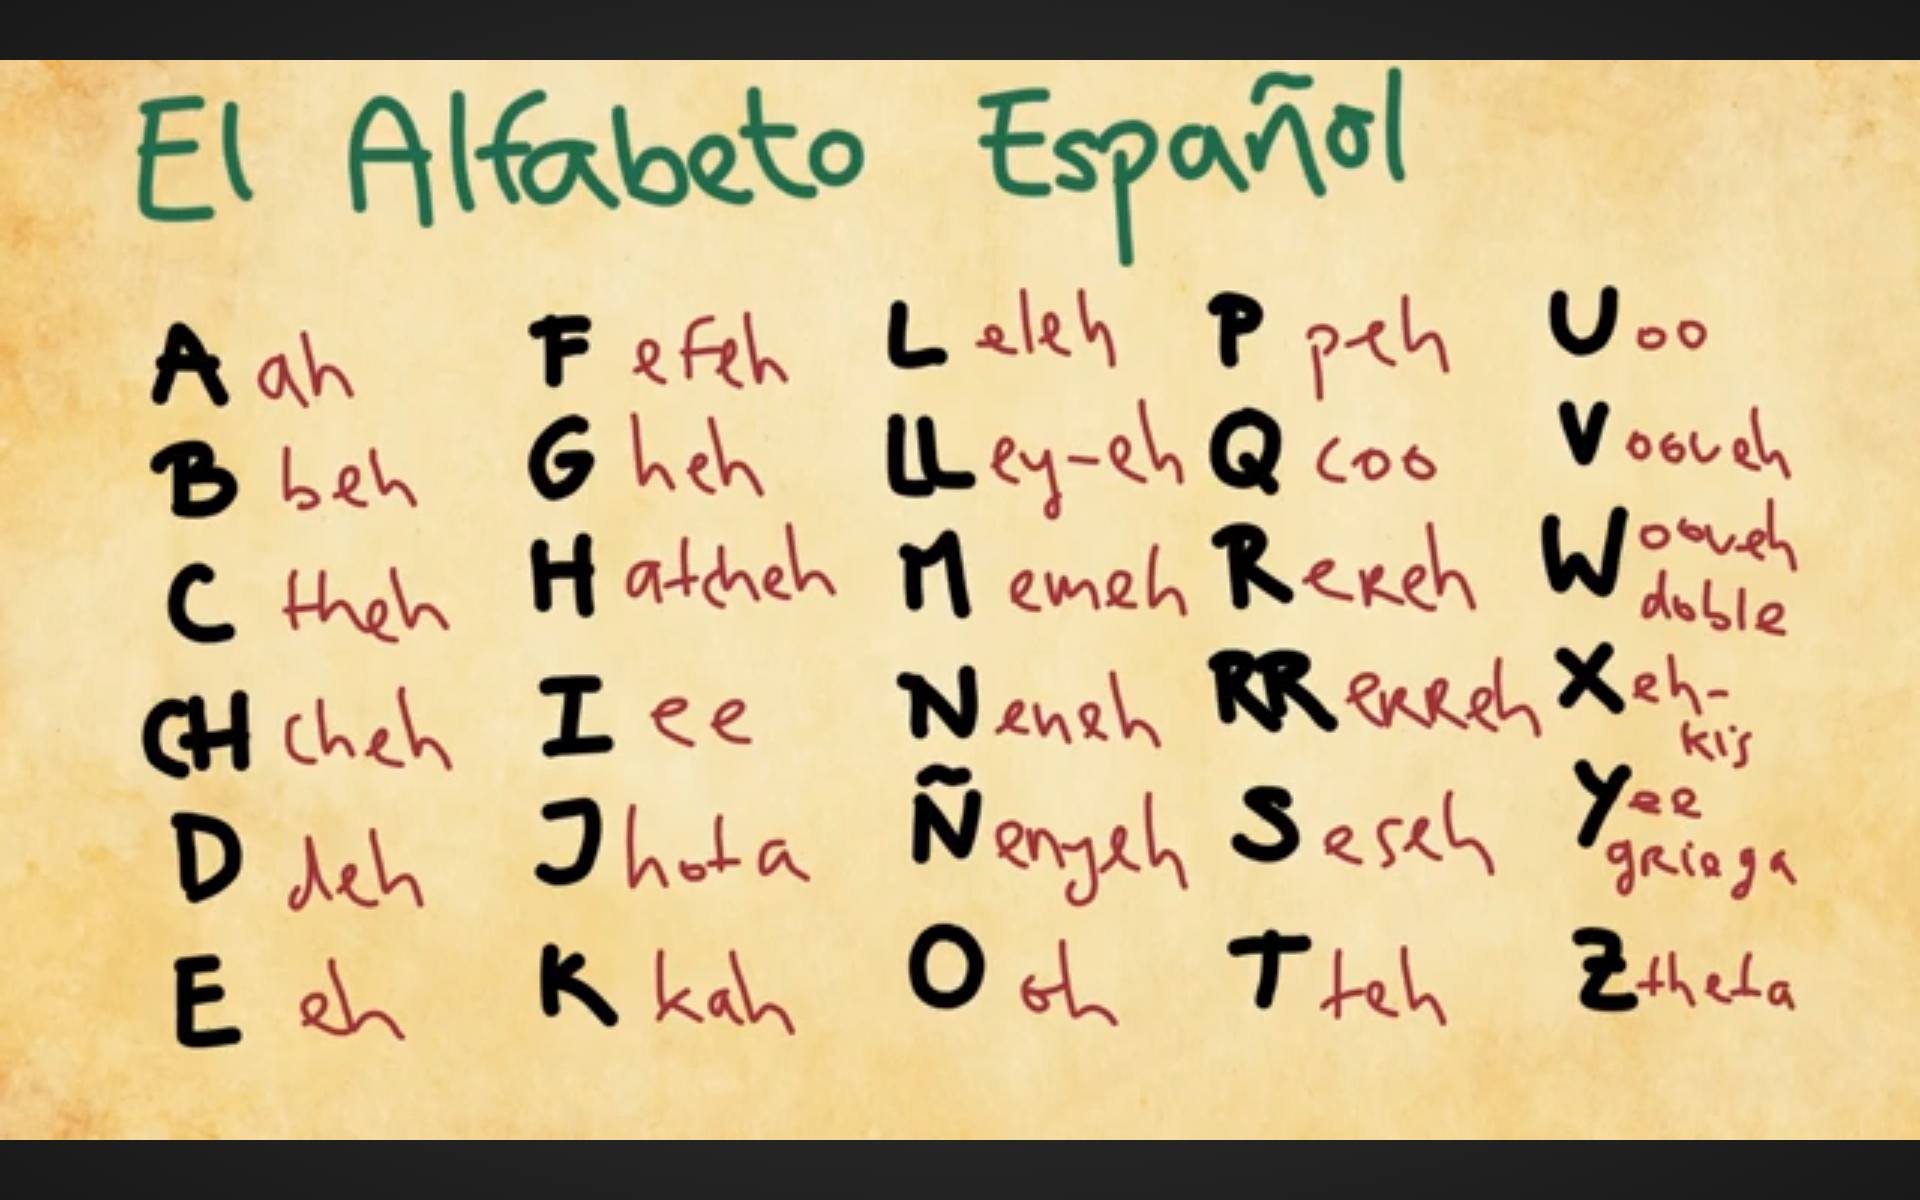 El Alfabeto Español
A ah
B beh
C theh
CH cheh
D deh
E eh
F efeh
G heh
H atcheh
I ee
J hota
K kah
L eleh
LL ey-eh
M emeh
N eneh
Ñ enyeh
O oh
P peh
Q coo
R ereh
RR erreh
S eseh
T teh
U oo
V ooveh
W ooveh
doble
X eh-
kis
Y ee
griega
Z theta